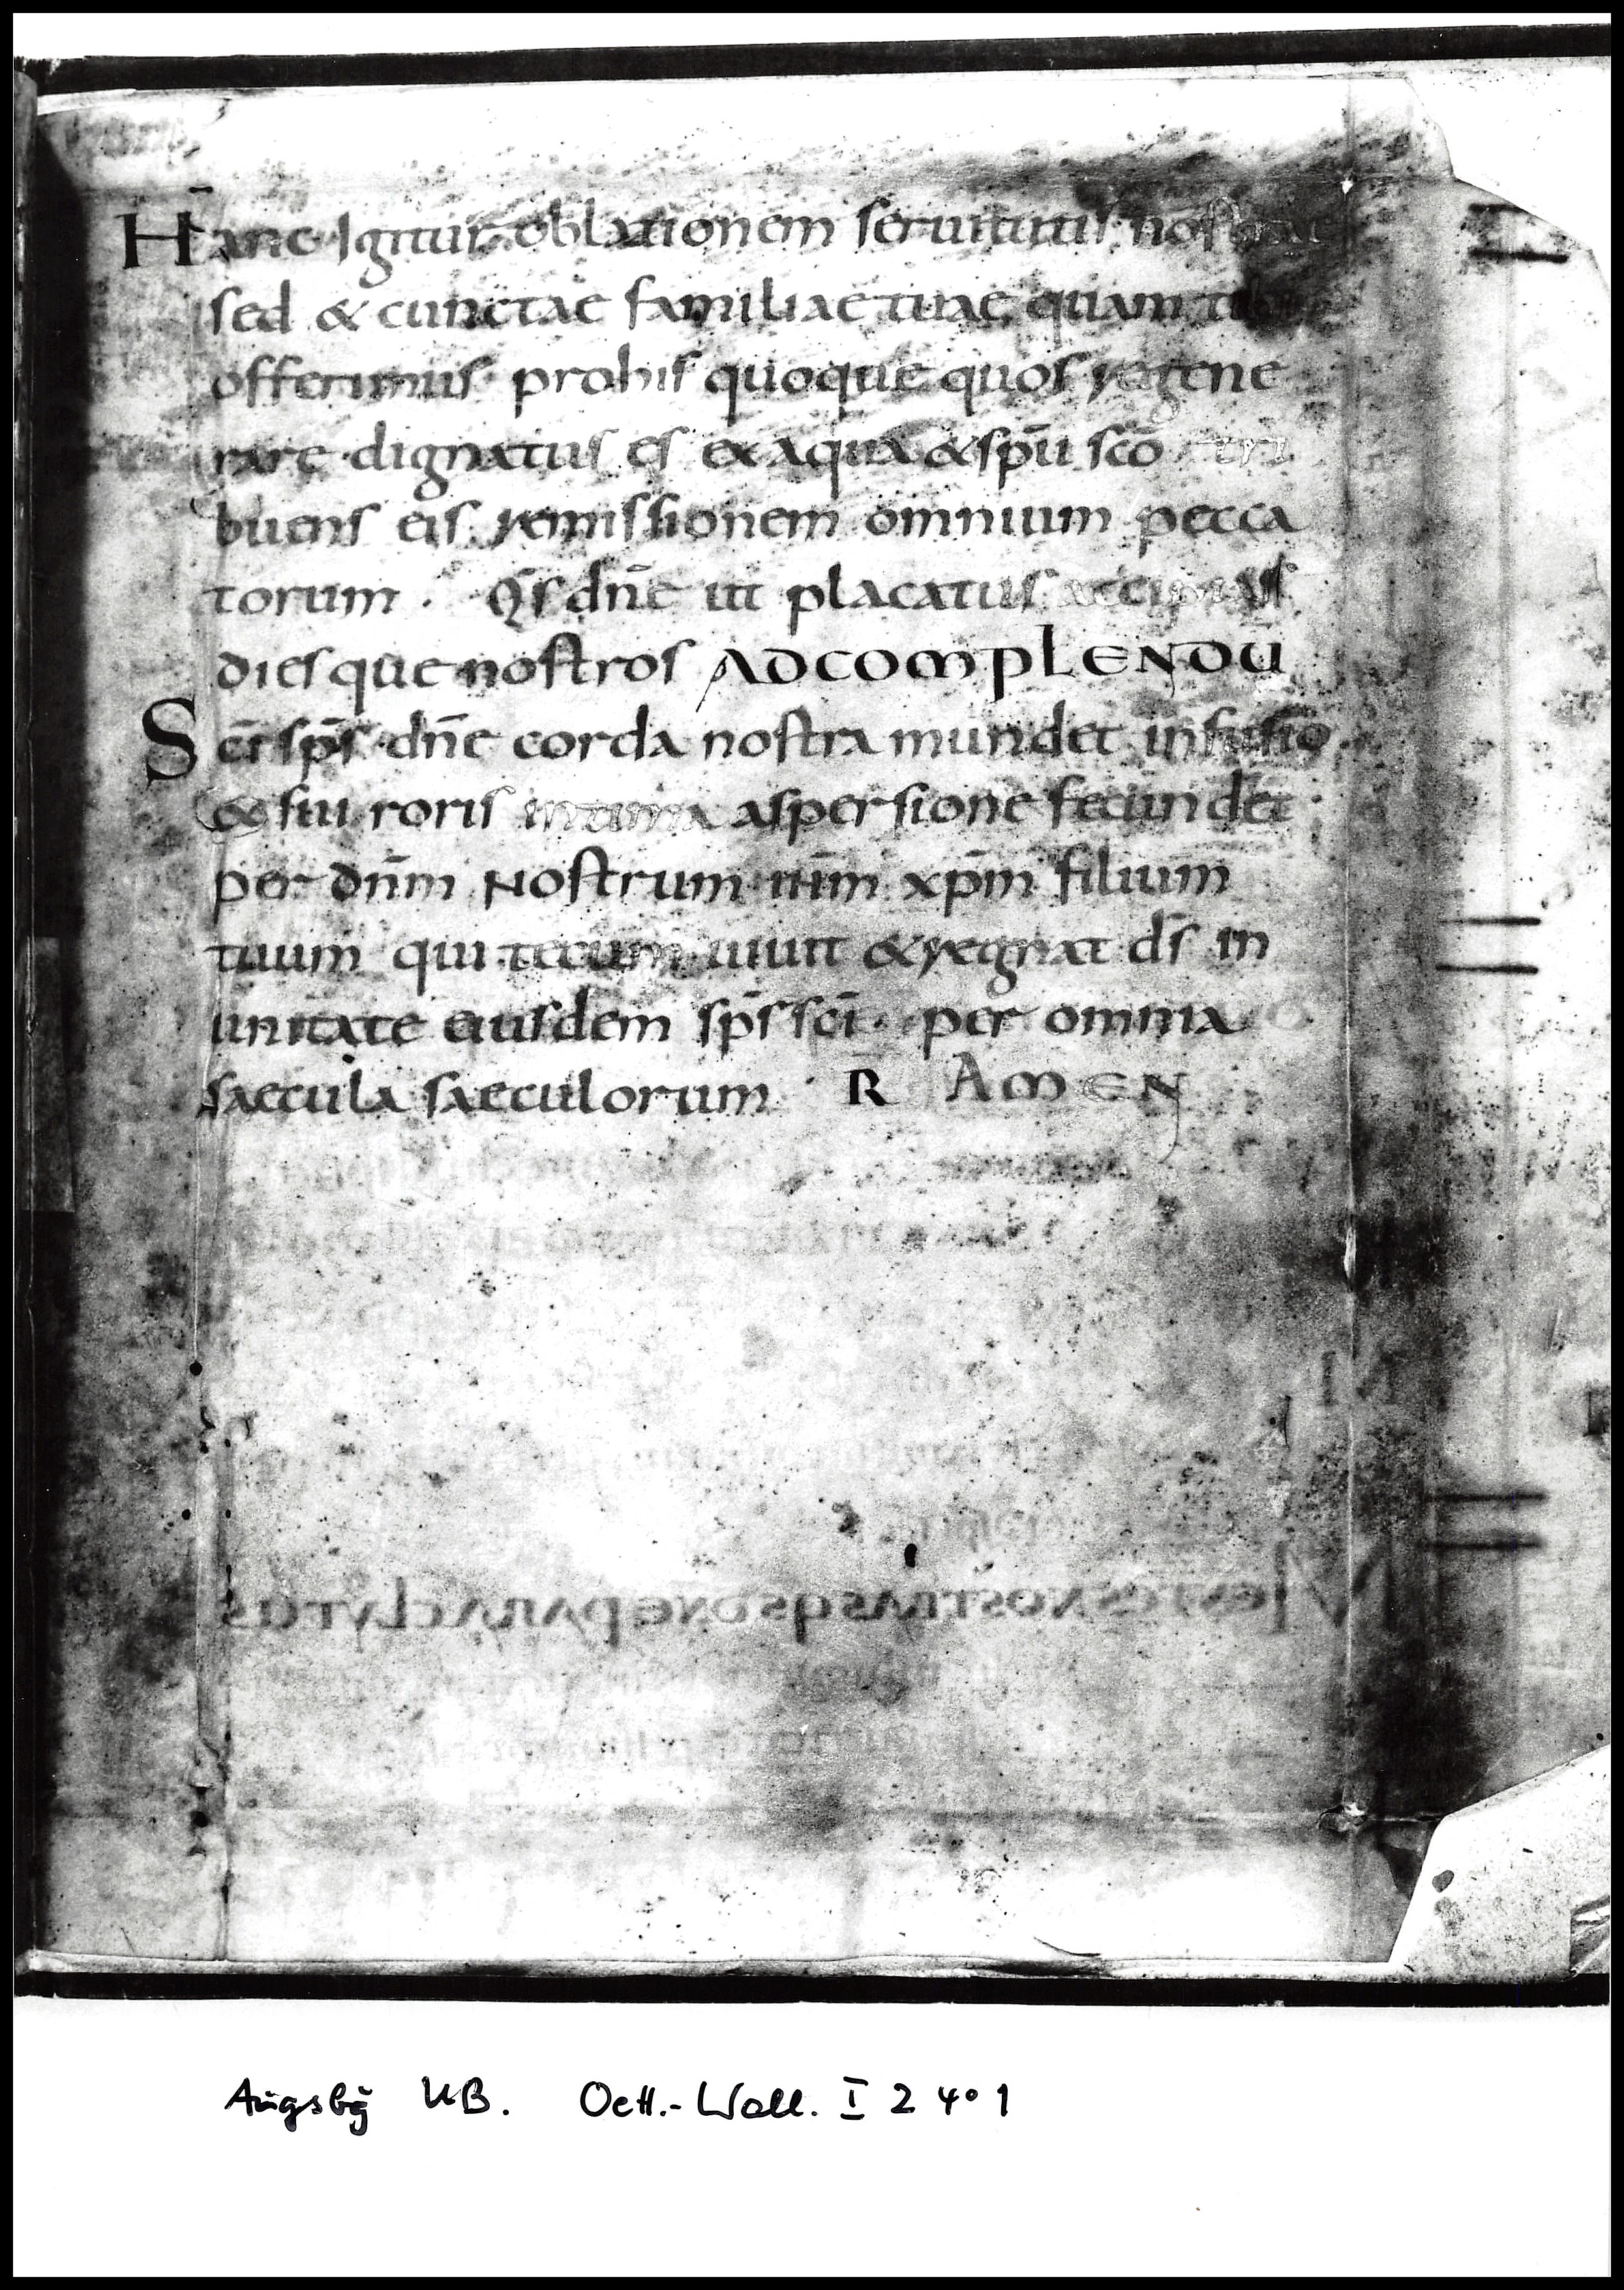 Hanc Igitur oblationem seruitutis nostrae
sed & cunctae familiae tuae quam tibi
offerimus prohis quoque quos regene
rare dignatus es ex aqua & spū scō tri
buens eis remissionem omnium pecca
torum . Qs dnē ut placatus accipias
diesque nostros ADCOMPLENDU
Scī sps dnē corda nostra mundet infusio
& sui roris intima aspersione fecundet
per dnm Nostrum ihm xpm filium
tuum qui tecum uiuit & regnat ds in
unitate eiusdem sps scī per omnia
saecula saeculorum R AMEN
MENTES NOSTRAS QS DNE PARACLYTUS
Augsbg UB. Oett.-Wall. I 2 4° 1